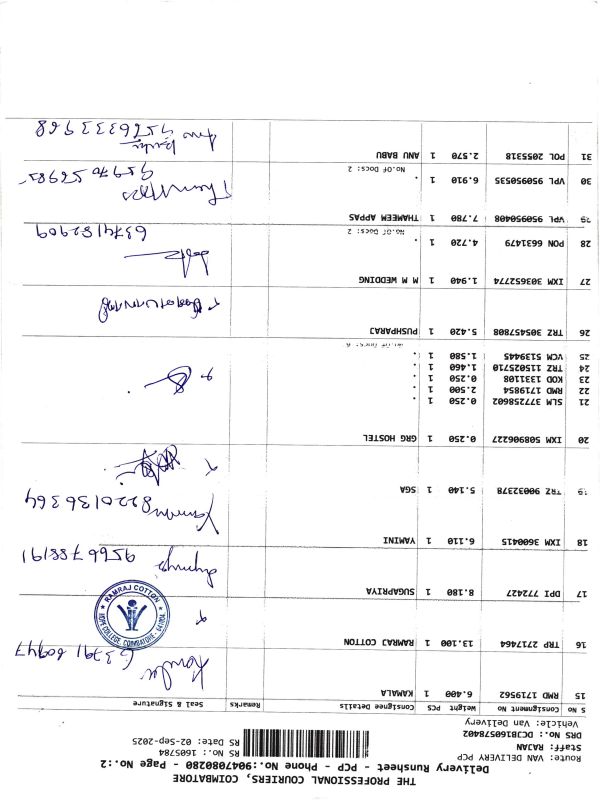 THE PROFESSIONAL COURIERS, COIMBATORE
Delivery Runsheet - PCP - Phone No.:9047080280 - Page No.:2
Route: VAN DELIVERY PCP
Staff: RAJAN
DRS No.: DCJB160578402
Vehicle: Van Delivery
RS No.: 1605784
RS Date: 02-Sep-2025
S No Consignment No Weight PCS Consignee Details Remarks Seal & Signature
15 RMD 1719562 6.400 1 KAMALA 63791 60947
16 TRP 2717464 13.100 1 RAMRAJ COTTON
RAMRAJ COTTON
HOPE COLLEGE, COIMBATORE
17 DPI 772427 8.180 1 SUGAPRIYA 9566788191
18 IXM 3600415 6.110 1 YAMINI 8220136364
19 TRZ 90032378 5.140 1 SGA
20 IXM 508906227 0.250 1 GRG HOSTEL
21 SLM 377258602 0.250 1 .
22 RMD 1719854 2.500 1 .
23 KOD 1331108 0.250 1 .
24 TRZ 115025710 1.460 1 .
25 VCM 5139445 1.580 1 .
No.Of Docs: 6
26 TRZ 305457808 5.420 1 PUSHPARAJ
27 IXM 303652774 1.940 1 M M WEDDING
28 PON 6631479 4.720 1 . 6374182909
No.Of Docs: 2
29 VPL 950950408 7.780 1 THAMEEM APPAS
30 VPL 950950535 6.910 1 .
No.Of Docs: 2
31 POL 2055318 2.570 1 ANU BABU 9566333968